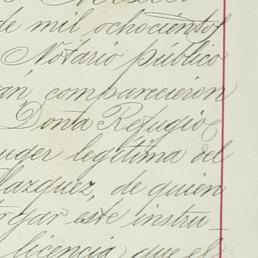 de mil ochocientos
Notario público
an, comparecieron
Doña Refugio
uger legitima del
Vazquez, de quien
rgar este instru-
licencia que el